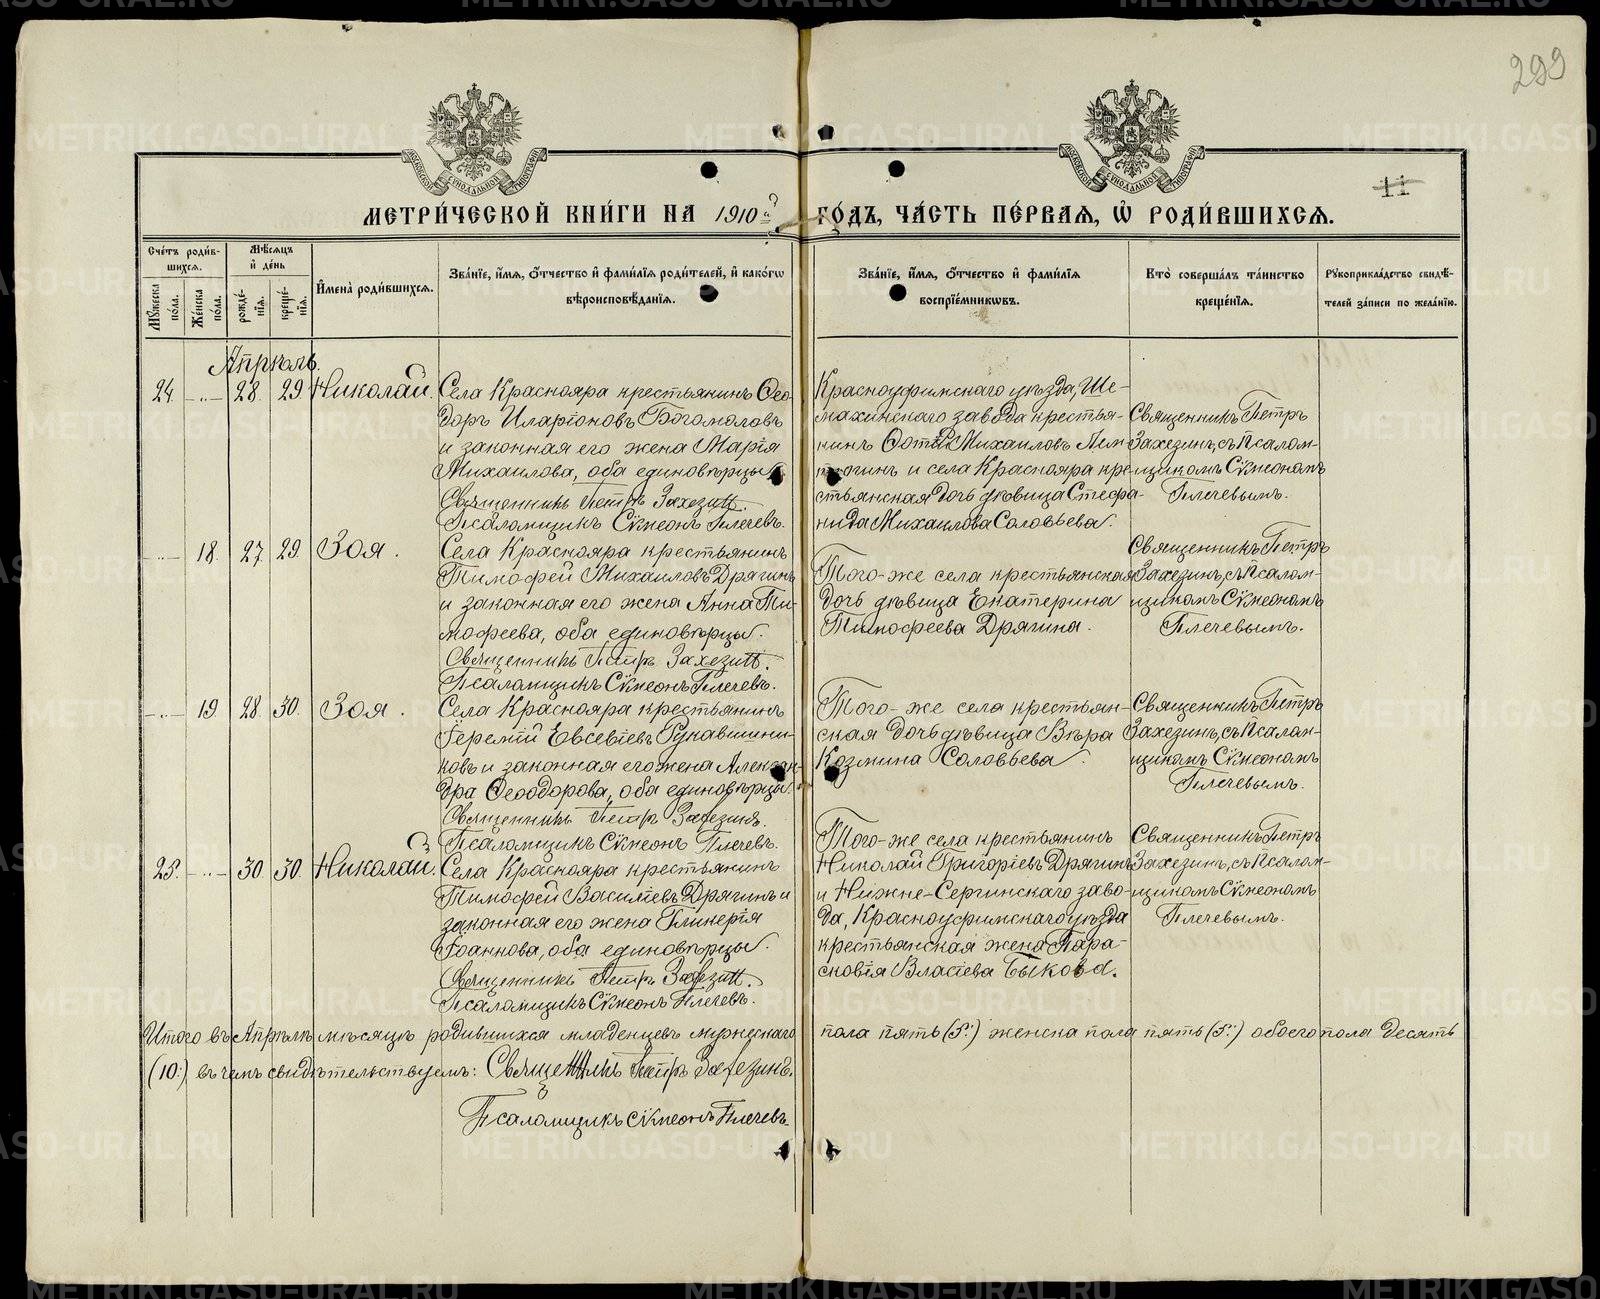 299
11
МЕТРИ́ЧЕСКОЙ КНИ́ГИ НА 1910й ГО́ДЪ, ЧА́СТЬ ПЕ́РВАЯ, Ѡ҆ РОДИ́ВШИХСЯ.
Сче́тъ роди́в-
шихся.
Мꙋ́жеска по́ла.
Же́нска по́ла.
Мѣ́сяцъ
и҆ де́нь
рожде́-
нїя.
креще́-
нїя.
И҆мена̀ роди́вшихся.
Зва́нїе, и҆́мя, ѻ҆́тчество и҆ фами́лїя роди́телей, и҆ како́гѡ
вѣроисповѣ́данїя.
Зва́нїе, и҆́мя, ѻ҆́тчество и҆ фами́лїя
воспрїе́мникѡвъ.
Кто̀ соверша́лъ та́инство
креще́нїя.
Рꙋкоприкла́дство свидѣ́-
телей за́писи по жела́нїю.
Апрѣль.
24 -"- 28 29 Николай.
Села Краснояра крестьянинъ Ѳео-
доръ Иларіоновъ Богомоловъ
и законная его жена Марія
Михаилова, оба единовѣрцы.
Священникъ Петръ Захезинъ.
Псаломщикъ Сѵмеонъ Плечевъ.
Красноуфимскаго уѣзда, Ше-
махинскаго завода крестья-
нинъ Михаиловъ
и села Краснояра кре-
стьянская дочь дѣвица Стефа-
нида Михаилова Соловьева.
Священникъ Петръ
Захезинъ, съ Псалом-
щикомъ Сѵмеономъ
Плечевымъ.
-"- 18. 27 29. Зоя.
Села Краснояра крестьянинъ
Тимофей Михаиловъ Дрягинъ
и законная его жена Анна Ти-
мофеева, оба единовѣрцы.
Священникъ Петръ Захезинъ.
Псаломщикъ Сѵмеонъ Плечевъ.
Того-же села крестьянская
дочь дѣвица Екатерина
Тимофеева Дрягина.
Священникъ Петръ
Захезинъ, съ Псалом-
щикомъ Сѵмеономъ
Плечевымъ.
-"- 19. 28. 30. Зоя.
Села Краснояра крестьянинъ
Іеремій Евсевіевъ Рукавишни-
ковъ и законная его жена Алексан-
дра Ѳеодорова, оба единовѣрцы.
Священникъ Петръ Захезинъ.
Псаломщикъ Сѵмеонъ Плечевъ.
Того-же села крестьян-
ская дочь дѣвица Вѣра
Козмина Соловьева.
Священникъ Петръ
Захезинъ, съ Псалом-
щикомъ Сѵмеономъ
Плечевымъ.
25. -"- 30. 30. Николай.
Села Краснояра крестьянинъ
Тимофей Василіевъ Дрягинъ и
законная его жена Гликерія
Іоаннова, оба единовѣрцы.
Священникъ Петръ Захезинъ.
Псаломщикъ Сѵмеонъ Плечевъ.
Того-же села крестьянинъ
Николай Григоріевъ Дрягинъ
и Нижне-Сергинскаго заво-
да, Красноуфимскаго уѣзда
крестьянская жена Пара-
сковія Власіева Быкова.
Священникъ Петръ
Захезинъ, съ Псалом-
щикомъ Сѵмеономъ
Плечевымъ.
Итого въ Апрѣлѣ мѣсяцѣ родившихся младенцевъ мужескаго пола пять (5:) женска пола пять (5:) обоего пола десять
(10:) въ чемъ свидѣтельствуемъ: Священникъ Петръ Захезинъ.
Псаломщикъ Сѵмеонъ Плечевъ.
METRIKI.GASO-URAL.RU